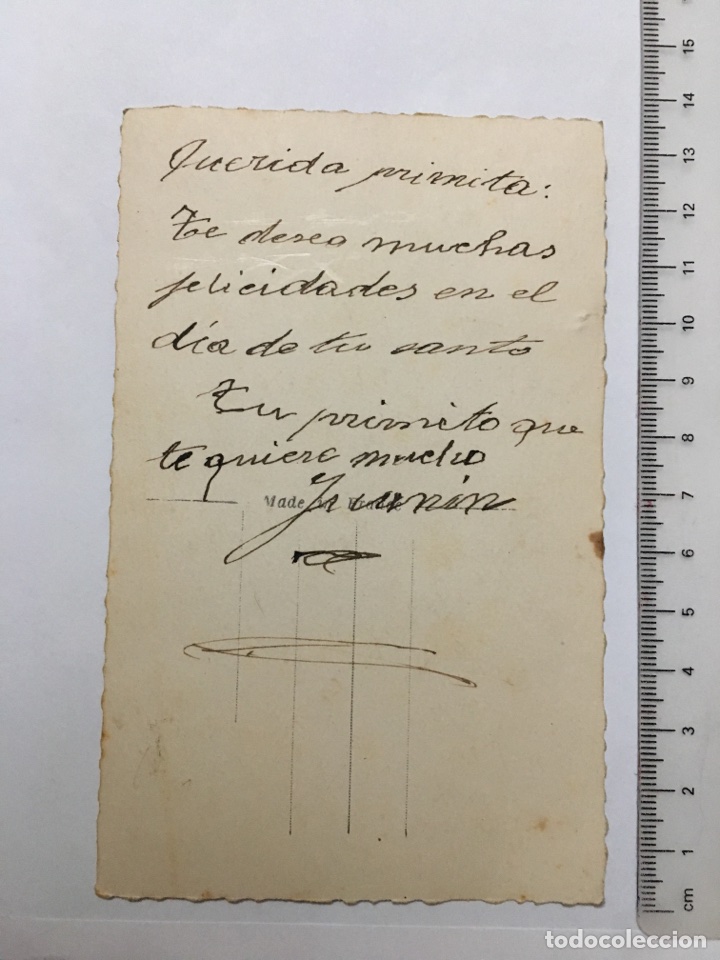 Querida primita:
te deseo muchas
felicidades en el
día de tu santo
Tu primito que
te quiere mucho
Juanin
Made in France
15
14
13
12
11
10
9
8
7
6
5
4
3
2
1
cm
todocoleccion